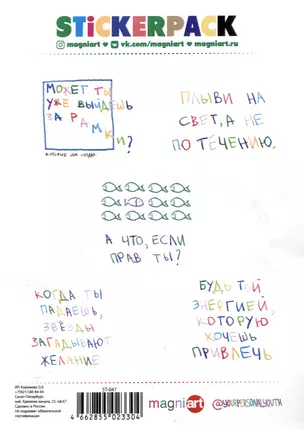 STICKERPACK
magniart ♥ vk.com/magniart ♥ magniart.ru
МОЖЕТ ТЫ
УЖЕ ВЫЙДЕШЬ
ЗА РАМКИ?
КОТОРЫЕ САМ СОЗДАЛ
ПЛЫВИ НА
СВЕТ, А НЕ
ПО ТЕЧЕНИЮ.
А ЧТО, ЕСЛИ
ПРАВ ТЫ?
КОГДА ТЫ
ПАДАЕШЬ,
ЗВЁЗДЫ
ЗАГАДЫВАЮТ
ЖЕЛАНИЕ
БУДЬ ТОЙ
ЭНЕРГИЕЙ,
КОТОРУЮ
ХОЧЕШЬ
ПРИВЛЕЧЬ
Санкт-Петербург
Сделано в России.
Не подлежит обязательной
сертификации
ST-047
4 662855 023304
magniart
@YOURPERSONALYOUTH